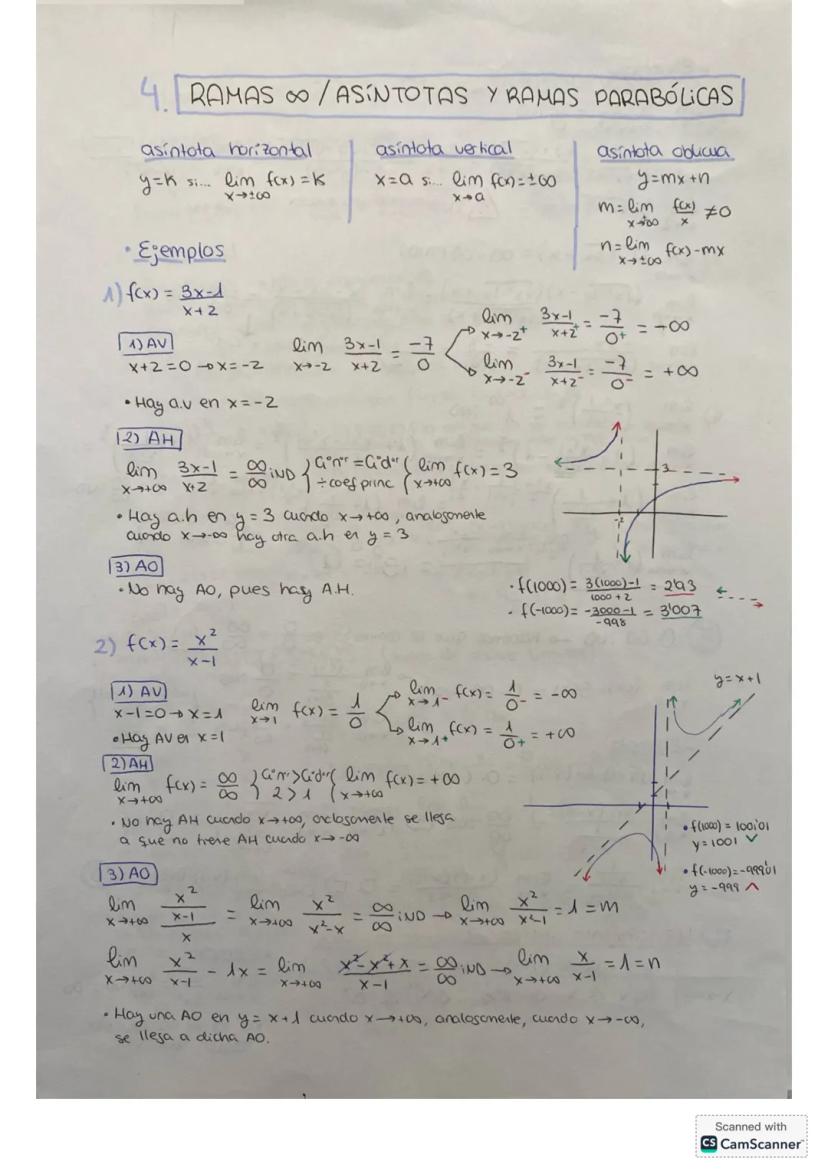 4. RAMAS ∞ / ASÍNTOTAS Y RAMAS PARABÓLICAS
asíntota horizontal
y=K si... lim x→±∞ f(x)=K
asíntota vertical
x=a si... lim x→a f(x)=±∞
asíntota oblicua
y=mx+n
m=lim x→±∞ f(x)/x ≠0
n=lim x→±∞ f(x)-mx
• Ejemplos
1) f(x) = 3x-1/x+2
1) AV
x+2=0 → x=-2
lim x→-2 3x-1/x+2 = -7/0
lim x→-2⁺ 3x-1/x+2⁺ = -7/0⁺ = -∞
lim x→-2⁻ 3x-1/x+2⁻ = -7/0⁻ = +∞
• Hay a.v en x=-2
2) AH
lim x→+∞ 3x-1/x+2 = ∞/∞ iND } Gºnºʳ = Gºdºʳ ÷coef princ { lim x→+∞ f(x)=3
• Hay a.h en y=3 cuando x→+∞, analogamente
cuando x→-∞ hay otra a.h en y=3
3
-2
3) AO
• No hay AO, pues hay A.H.
• f(1000) = 3(1000)-1/1000+2 = 2'93
• f(-1000) = -3000-1/-998 = 3'007
2) f(x) = x²/x-1
1) AV
x-1=0 → x=1
lim x→1 f(x) = 1/0
lim x→1⁻ f(x) = 1/0⁻ = -∞
lim x→1⁺ f(x) = 1/0⁺ = +∞
• Hay AV en x=1
y=x+1
2) AH
lim x→+∞ f(x) = ∞/∞ } Gºnºʳ>Gºdºʳ 2>1 { lim x→+∞ f(x)=+∞
• No hay AH cuando x→+∞, analogamente se llega
a que no tiene AH cuando x→-∞
• f(1000) = 1001'01
y=1001 ✓
• f(-1000)=-999'01
y=-999 ^
3) AO
lim x→+∞ x²/x-1/x = lim x→+∞ x²/x²-x = ∞/∞ iND → lim x→+∞ x²/x²-1 = 1 = m
lim x→+∞ x²/x-1 - 1x = lim x→+∞ x²-x²+x/x-1 = ∞/∞ iND → lim x→+∞ x/x-1 = 1 = n
• Hay una AO en y=x+1 cuando x→+∞, analogamente, cuando x→-∞,
se llega a dicha AO.
Scanned with
CS CamScanner